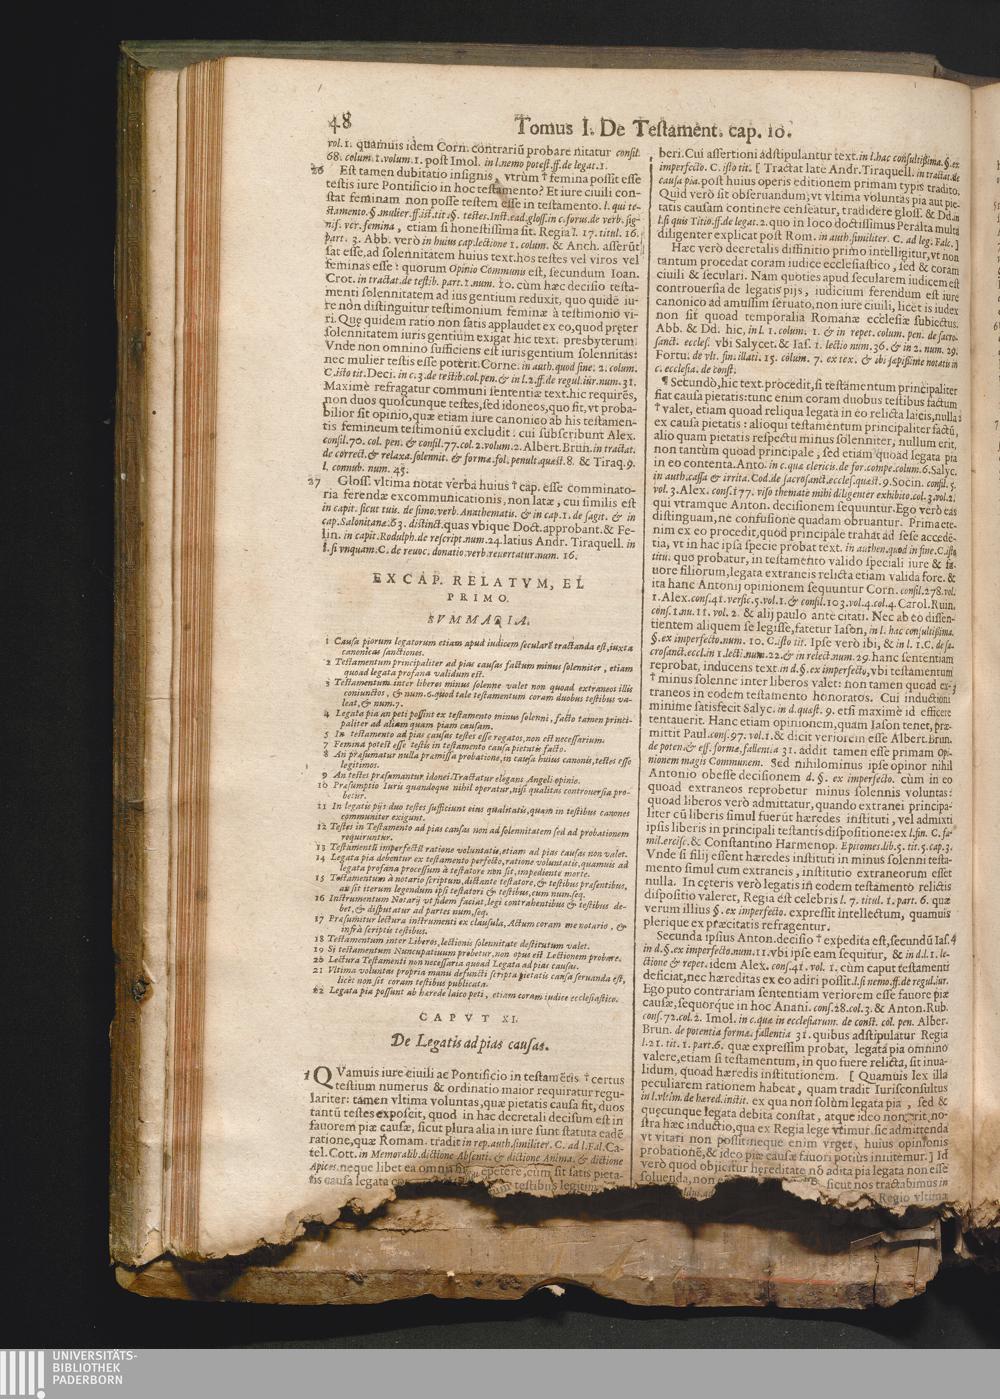 48
Tomus I. De Testament. cap. 10.
vol. 1. quamuis idem Corn. contrariũ probare nitatur consil.
68. colum. 1. volum. 1. post Imol. in l. nemo potest. ff. de legat. 1.
26 Est tamen dubitatio insignis, vtrùm † femina possit esse
testis iure Pontificio in hoc testamento? Et iure ciuili con-
stat feminam non posse testem esse in testamento. l. qui te-
stamento. §. mulier. ff. ist. tit. §. testes. Inst. ead. gloss. in c. forus. de verb. sig-
nif. ver. femina, etiam si honestissima sit. Regia l. 17. titul. 16.
part. 3. Abb. verò in huius cap. lectione 1. colum. & Anch. asserũt
sat esse, ad solennitatem huius text. hos testes vel viros vel
feminas esse: quorum Opinio Communis est, secundum Ioan.
Crot. in tractat. de testib. part. 1. num. 10. cùm hæc decisio testa-
menti solennitatem ad ius gentium reduxit, quo quidē iu-
re nõn distinguitur testimonium feminæ à testimonio vi-
ri. Quę quidem ratio non satis applaudet ex eo, quod pręter
solennitatem iuris gentium exigat hic text. presbyterum.
Vnde non omnino sufficiens est iuris gentium solennitas:
nec mulier testis esse poterit. Corne. in auth. quod sine. 2. colum.
C. isto tit. Deci. in c. 3. de testib. col. pen. & in l. 2. ff. de regul. iur. num. 31.
Maximè refragatur communi sententiæ text. hic requirēs,
non duos quoscunque testes, sed idoneos, quo fit, vt proba-
bilior sit opinio, quæ etiam iure canonico ab his testamen-
tis femineum testimoniũ excludit: cui subscribunt Alex.
consil. 70. col. pen. & consil. 77. col. 2. volum. 2. Albert. Brun. in tractat.
de correct. & relaxa. solennit. & forma. fol. penult. quæst. 8. & Tiraq. 9.
l. connub. num. 45.
27 Gloss. vltima notat verba huius † cap. esse comminato-
ria ferendæ excommunicationis, non latæ, cui similis est
in capit. sicut tuis. de simo. verb. Anathematis. & in cap. 1. de sagit. & in
cap. Salonitanæ. 63. distinct. quas vbique Doct. approbant. & Fe-
lin. in capit. Rodulph. de rescript. num. 24. latius Andr. Tiraquell. in
l. si vnquam. C. de reuoc. donatio. verb. reuertatur. num. 16.
EX CAP. RELATVM, EL
PRIMO.
SVMMARIA.
1 Causa piorum legatorum etiam apud iudicem secularē tractanda est, iuxta
canonicas sanctiones.
2 Testamentum principaliter ad pias causas factum minus solenniter, etiam
quoad legata profana validum est.
3 Testamentum inter liberos minus solenne valet non quoad extraneos illis
coniunctos, & num. 6. quod tale testamentum coram duobus testibus va-
leat, & num. 7.
4 Legata pia an peti possint ex testamento minus solenni, facto tamen princi-
paliter ad aliam quam piam causam.
5 In testamento ad pias causas testes esse rogatos, non est necessarium.
7 Femina potest esse testis in testamento causa pietatis facto.
8 An præsumatur nulla præmissa probatione, in causa huius canonis, testes esse
legitimos.
9 An testes præsumantur idonei. Tractatur elegans Angeli opinio.
10 Præsumptio Iuris quandoque nihil operatur, nisi qualitas controuersia pro-
betur.
11 In legatis pijs duo testes sufficiunt eius qualitatis, quam in testibus canones
communiter exigunt.
12 Testes in Testamento ad pias causas non ad solemnitatem sed ad probationem
requiruntur.
13 Testamentũ imperfectũ ratione voluntatis, etiam ad pias causas non valet.
14 Legata pia debentur ex testamento perfecto, ratione voluntatis, quamuis ad
legata profana processum à testatore non sit, impediente morte.
15 Testamentum à notario scriptum, dictante testatore, & testibus præsentibus,
an sit iterum legendum ipsi testatori & testibus, cum num. seq.
16 Instrumentum Notarij vt fidem faciat, legi contrahentibus & testibus de-
bet, & disputatur ad partes num. seq.
17 Præsumitur lectura instrumenti ex clausula, Actum coram me notario, &
infrà scriptis testibus.
18 Testamentum inter Liberos, lectionis solennitate destitutum valet.
19 Si testamentum Nuncupatiuum probetur, non opus est Lectionem probare.
20 Lectura Testamenti non necessaria quoad Legata ad pias causas.
21 Vltima voluntas propria manu defuncti scripta pietatis causa seruanda est,
licèt non sit coram testibus publicata.
22 Legata pia possunt ab herede laico peti, etiam coram iudice ecclesiastico.
CAPVT XI.
De Legatis ad pias causas.
1 QVamuis iure ciuili ac Pontificio in testamētis † certus
testium numerus & ordinatio maior requiratur regu-
lariter: tamen vltima voluntas, quæ pietatis causa fit, duos
tantũ testes exposcit, quod in hac decretali decisum est in
fauorem piæ causæ, sicut plura alia in iure sunt statuta eadē
ratione, quæ Romam. tradit in rep. auth. similiter. C. ad l. Fal. Ca-
tel. Cott. in Memoralib. dictione Absenti. & dictione Anima. & dictione
Apices. neque libet ea omnia hîc repetere, cùm sit satis pieta-
tis causa legata testibus legitim
beri. Cui assertioni adstipulantur text. in l. hac consultissima. §. ex
imperfecto. C. isto tit. [ Tractat late Andr. Tiraquell. in tractat. de
causa pia. post huius operis editionem primam typis tradito.
Quid verò sit obseruandum, vt vltima voluntas pia aut pie-
tatis causam continere censeatur, tradidere gloss. & Dd. in
l. si quis Titio. ff. de legat. 2. quo in loco doctissimus Peralta multa
diligenter explicat post Rom. in auth. similiter. C. ad leg. Falc. ]
Hæc verò decretalis diffinitio primò intelligitur, vt non
tantum procedat coram iudice ecclesiastico, sed & coram
ciuili & seculari. Nam quoties apud secularem iudicem est
controuersia de legatis pijs, iudicium ferendum est iure
canonico ad amussim seruato, non iure ciuili, licèt is iudex
non sit quoad temporalia Romanæ ecclesiæ subiectus.
Abb. & Dd. hic, in l. 1. colum. 1. & in repet. colum. pen. de sacro-
sanct. eccles. vbi Salycet. & Ias. 1. lectio num. 36. & in 2. num. 29.
Fortu. de vlt. fin. illati. 15. colum. 7. ex tex. & ibi sæpissime notatis in
c. ecclesia. de const.
¶ Secundò, hic text. procedit, si testamentum principaliter
fiat causa pietatis: tunc enim coram duobus testibus factum
† valet, etiam quoad reliqua legata in eo relicta laicis, nulla 2
ex causa pietatis: alioqui testamentum principaliter factũ,
alio quam pietatis respectu minus solenniter, nullum erit,
non tantùm quoad principale, sed etiam quoad legata pia
in eo contenta. Anto. in c. quæ clericis. de for. compe. colum. 6. Salyc.
in auth. cassa & irrita. Cod. de sacrosanct. eccles. quæst. 9. Socin. consil. 5.
vol. 3. Alex. cons. 177. viso themate mihi diligenter exhibito. col. 3. vol. 2.
qui vtramque Anton. decisionem sequuntur. Ego verò eas
distinguam, ne confusione quadam obruantur. Prima ete-
nim ex eo procedit, quod principale trahat ad sese accedē-
tia, vt in hac ipsa specie probat text. in authen. quod in fine. C. isto
titu. quo probatur, in testamento valido speciali iure & fa-
uore filiorum, legata extraneis relicta etiam valida fore. &
ita hanc Antonij opinionem sequuntur Corn. consil. 278. vol.
1. Alex. cons. 41. versic. 5. vol. 1. & consil. 103. vol. 4. col. 4. Carol. Ruin.
cons. 1. nu. 11. vol. 2. & alij paulo ante citati. Nec ab eo dissen-
tientem aliquem se legisse, fatetur Iason, in l. hac consultissima.
§. ex imperfecto. num. 10. C. isto tit. Ipse verò ibi, & in l. 1. C. de sa-
crosanct. eccl. in 1. lecti. num. 22. & in relect. num. 29. hanc sententiam
reprobat, inducens text. in d. §. ex imperfecto, vbi testamentum
† minus solenne inter liberos valet: non tamen quoad ex- 3
traneos in eodem testamento honoratos. Cui inductioni
minimè satisfecit Salyc. in d. quæst. 9. etsi maximè id efficere
tentauerit. Hanc etiam opinionem, quam Iason tenet, præ-
mittit Paul. cons. 97. vol. 1. & dicit veriorem esse Albert. Brun.
de poten. & eff. formæ, fallentia 31. addit tamen esse primam Opi-
nionem magis Communem. Sed nihilominus ipse opinor nihil
Antonio obesse decisionem d. §. ex imperfecto. cùm in eo
quoad extraneos reprobetur minus solennis voluntas:
quoad liberos verò admittatur, quando extranei principa-
liter cũ liberis simul fuerũt hæredes instituti, vel admixti
ipsis liberis in principali testantis dispositione: ex l. fin. C. fa-
mil. ercisc. & Constantino Harmenop. Epitomes lib. 5. tit. 5. cap. 3.
Vnde si filij essent hæredes instituti in minus solenni testa-
mento simul cum extraneis, institutio extraneorum esset
nulla. In cęteris verò legatis in eodem testamento relictis
dispositio valeret, Regia est celebris l. 7. titul. 1. part. 6. quæ
verum illius §. ex imperfecto. expressit intellectum, quamuis
plerique ex præcitatis refragentur.
Secunda ipsius Anton. decisio † expedita est, secundũ Ias. 4
in d. §. ex imperfecto. num. 11. vbi ipse eam sequitur, & in d. l. 1. le-
ctione & repet. idem Alex. cons. 41. vol. 1. cùm caput testamenti
deficiat, nec hæreditas ex eo adiri possit. l. si nemo. ff. de regul. iur.
Ego puto contrariam sententiam veriorem esse fauore piæ
causæ, sequorque in hoc Anani. cons. 28. col. 3. & Anton. Rub.
cons. 72. col. 2. Imol. in c. quæ in ecclesiarum. de const. col. pen. Alber.
Brun. de potentia formæ. fallentia 31. quibus adstipulatur Regia
l. 21. tit. 1. part. 6. quæ expressim probat, legata pia omnino
valere, etiam si testamentum, in quo fuere relicta, sit inua-
lidum, quoad hæredis institutionem. [ Quamuis lex illa
peculiarem rationem habeat, quam tradit Iurisconsultus
in l. vltim. de hæred. instit. ex qua non solùm legata pia, sed &
quęcunque legata debita constat, atque ideo non erit no-
stra hæc inductio, qua ex Regia lege vtimur. sic admittenda
vt vitari non possit: neque enim vrget, huius opinionis
probationē, & ideo piæ causæ fauori potiùs innitemur. ] Id
verò quod obijcitur hereditate nō adita pia legata non esse
soluenda, non sicut nos tractabimus in
Regio vltima
UNIVERSITÄTS-
BIBLIOTHEK
PADERBORN